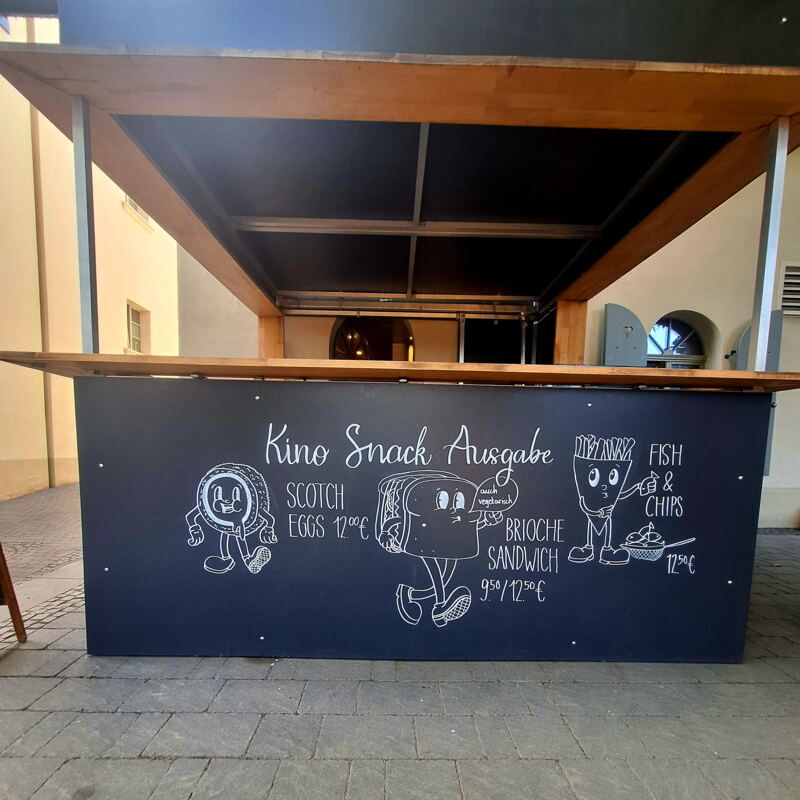 Kino Snack Ausgabe
SCOTCH
EGGS 12.00€
auch
vegetarisch
BRIOCHE
SANDWICH
9.50/12.50€
FISH
&
CHIPS
12.50€